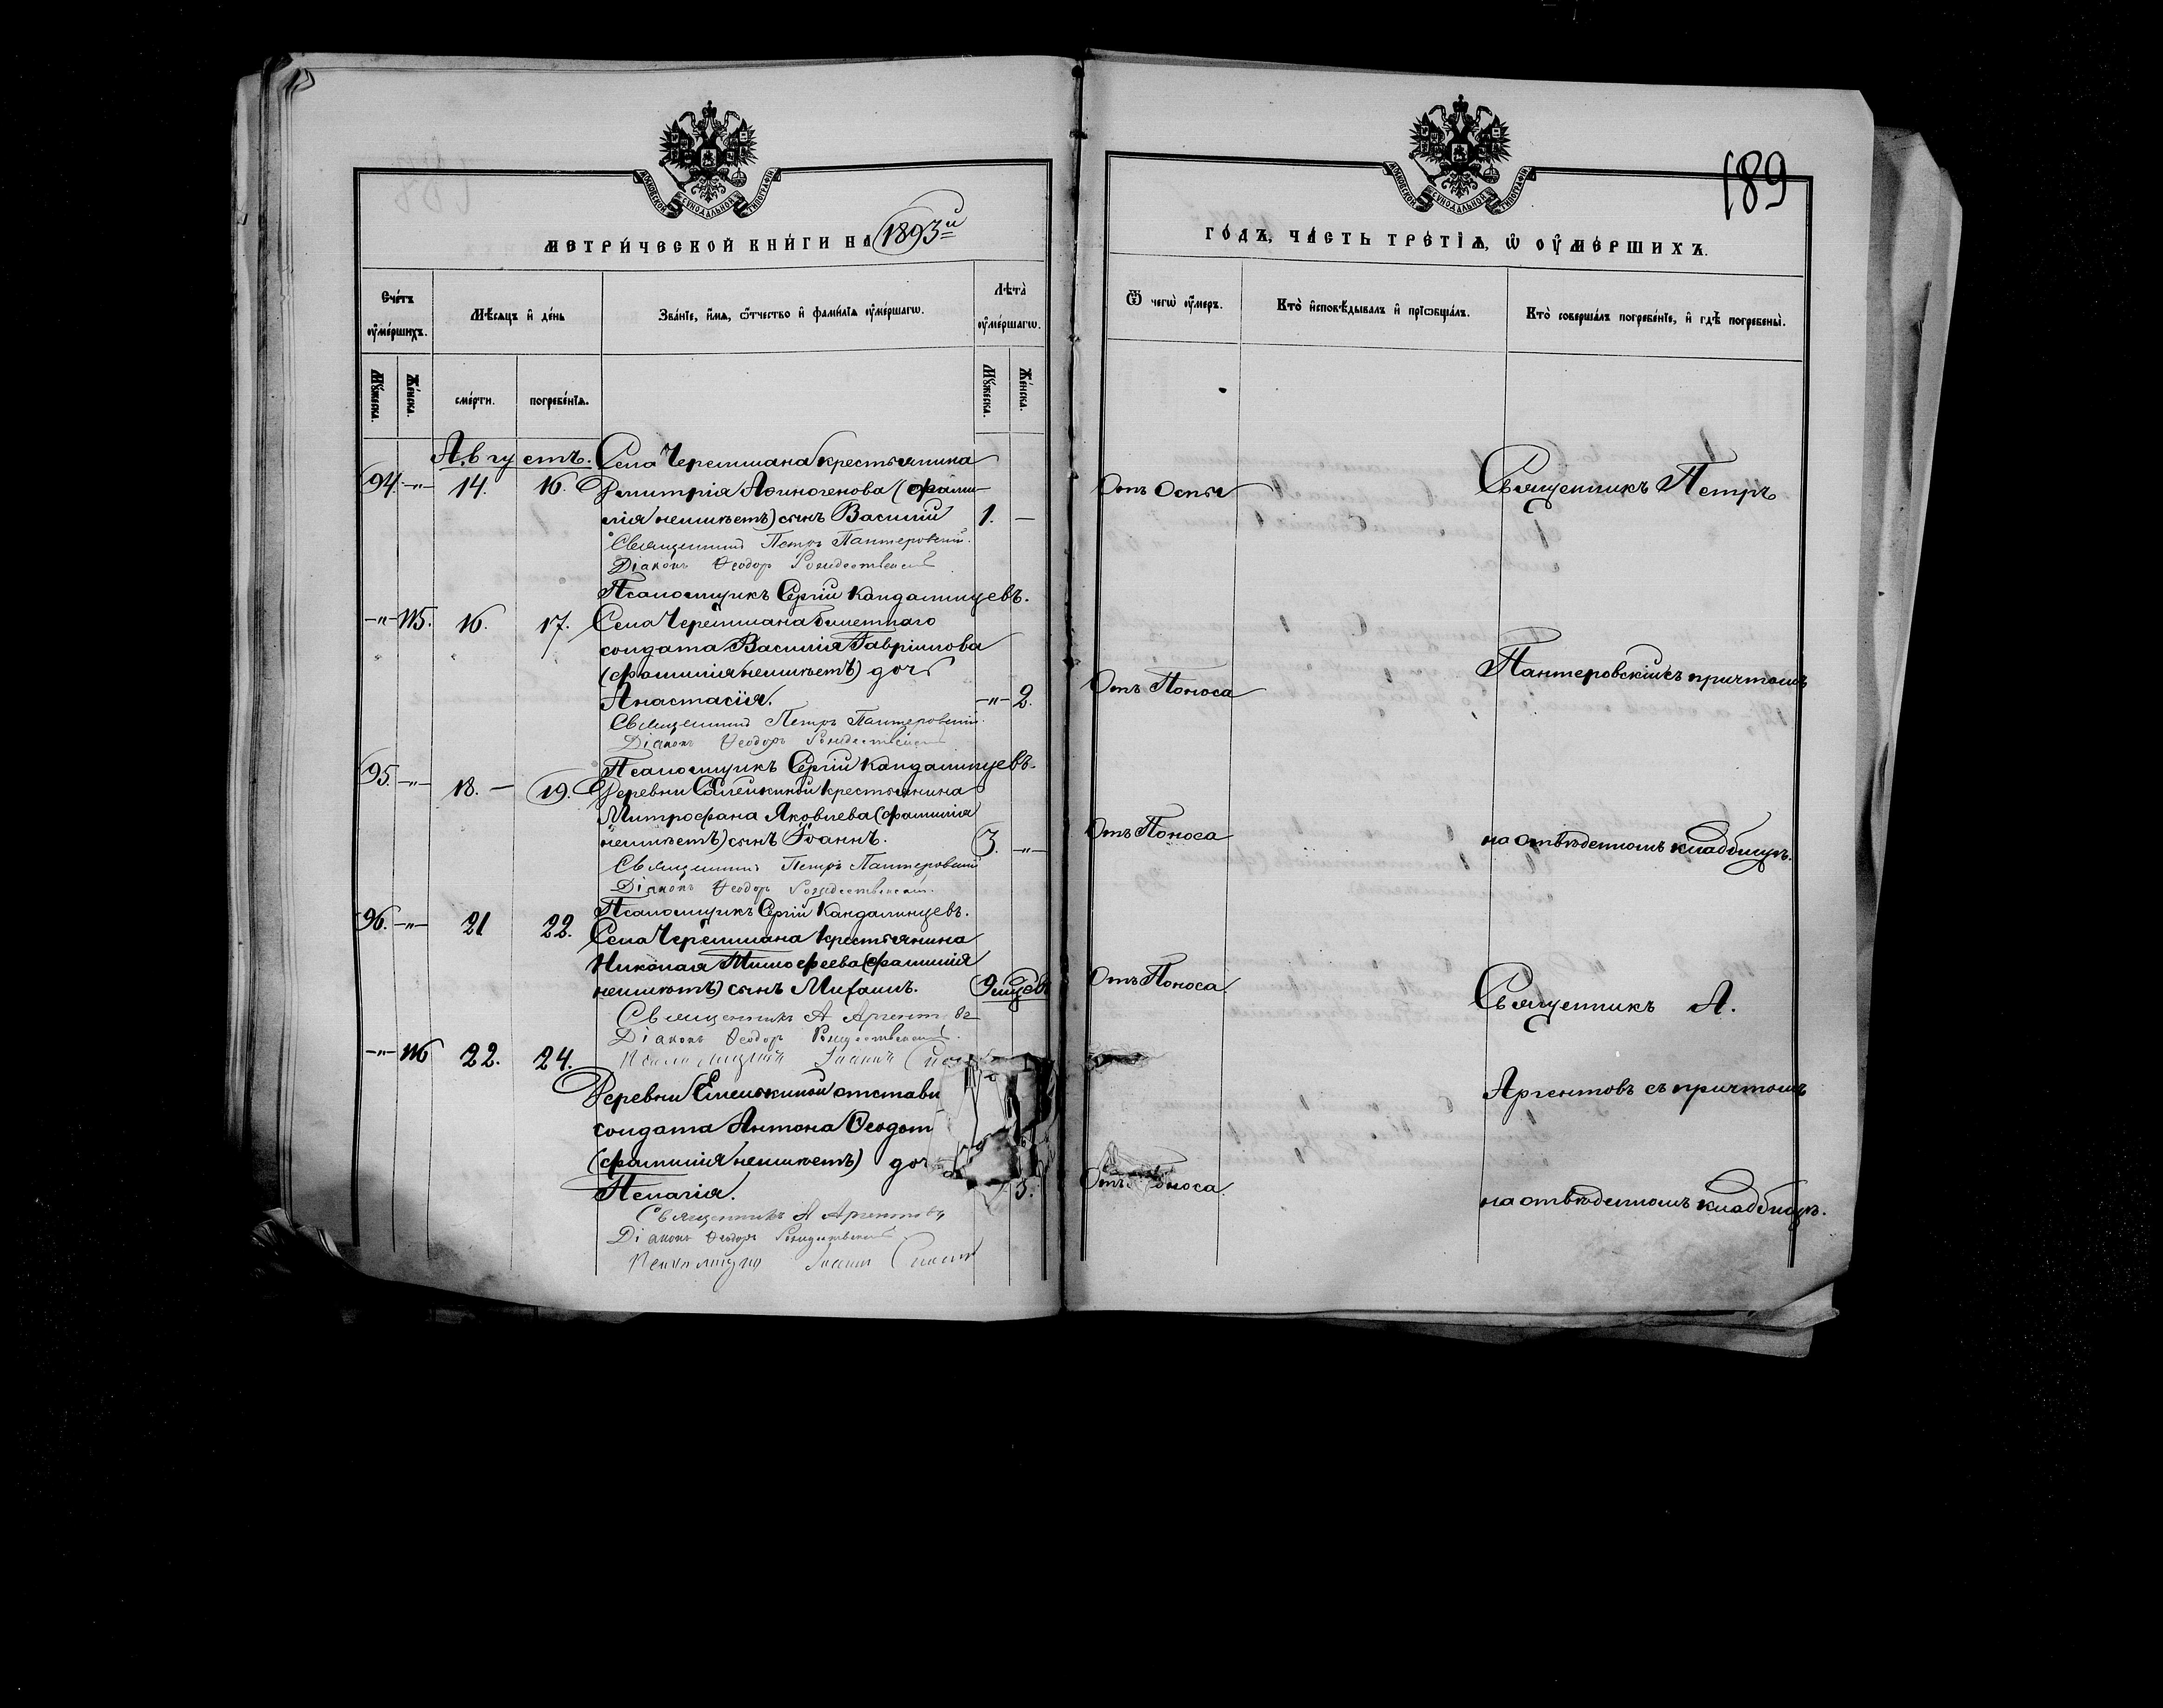 МОСКОВСКОЙ СѴНОДАЛЬНОЙ ТИПОГРАФІИ
МЕТРИ́ЧЕСКОЙ КНИ́ГИ НА 1893й
Сче́тъ ᲂу҆ме́ршихъ.
Мѣ́сяцъ и҆ де́нь
Зва́нїе, и҆́мѧ, ѻ҆́тчество и҆ фами́лїѧ ᲂу҆ме́ршагѡ.
Лѣ́та ᲂу҆ме́ршагѡ.
Мꙋ́жеска.
Же́нска.
сме́рти.
погребе́нїѧ.
Мꙋ́жеска.
Же́нска.
Августъ.
Села Черемшана крестьянина
94. -"- 14. 16. Димитрія Аѳиногенова (фами-
лія неимѣетъ) сынъ Василій 1. —
Священникъ Петръ Пантеровскій.
Діаконъ Ѳеодоръ Рождественскій
Псаломщикъ Сергій Кандалинцевъ.
-"- 115. 16. 17. Села Черемшана билетнаго
солдата Василія Гавріилова
(фамилія неимѣетъ) дочь
Анастасія. -"- 2.
Священникъ Петръ Пантеровскій.
Діаконъ Ѳеодоръ Рождественскій
Псаломщикъ Сергій Кандалинцевъ.
95. -"- 18. — 19. Деревни Емелькиной крестьянина
Митрофана Яковлева (фамилія
неимѣетъ) сынъ Іоаннъ. 3. -"-
Священникъ Петръ Пантеровскій
Діаконъ Ѳеодоръ Рождественскій.
Псаломщикъ Сергій Кандалинцевъ.
96. -"- 21 22. Села Черемшана крестьянина
Николая Тимофеева (фамилія
неимѣетъ) сынъ Михаилъ.
Священникъ А Аргентовъ
Діаконъ Ѳеодоръ Рождественскій.
-"- 116 22. 24.
Деревни Емелькиной отставн
солдата Антона Ѳеодот
(фамилія неимѣетъ) доч
Пелагія. 5.
Священникъ А Аргентовъ
Діаконъ Ѳеодоръ Рождественскій
189
МОСКОВСКОЙ СѴНОДАЛЬНОЙ ТИПОГРАФІИ
ГО́ДЪ, ЧА́СТЬ ТРЕ́ТЇѦ, Ѡ҆ ОУ҆МЕ́РШИХЪ.
Ѿ чегѡ̀ ᲂу҆́меръ.
Кто̀ и҆сповѣ́дывалъ и҆ прїѡбща́лъ.
Кто̀ соверша́лъ погребе́нїе, и҆ гдѣ̀ погребены̀.
Отъ Оспы
Священникъ Петръ
Отъ Поноса
Пантеровскій съ причтомъ
Отъ Поноса
на отведенномъ кладбищѣ.
Отъ Поноса.
Священникъ А.
Аргентовъ съ причтомъ
Отъ Поноса.
на отведенномъ кладбищѣ.